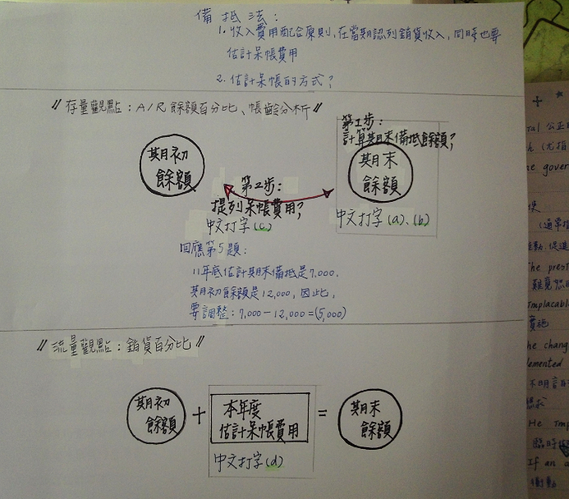 備抵法:
1. 收入費用配合原則,在當期認列銷貨收入,同時也要
估計呆帳費用
2. 估計呆帳的方式?
〃存量觀點:A/R餘額百分比、帳齡分析〃
期初
餘額
第2步:
提列呆帳費用?
中文打字(c)
第1步:
計算期末備抵餘額?
期末
餘額
中文打字(a)、(b)
回應第5題:
11年底估計期末備抵是7,000.
其期初餘額是12,000,因此,
要調整:7,000-12,000=(5,000)
〃流量觀點:銷貨百分比〃
期初
餘額
+
本年度
估計呆帳費用
中文打字(d)
=
期末
餘額
the gover
The prest
implacable
實施
the chang
lemented
He imp
If an a